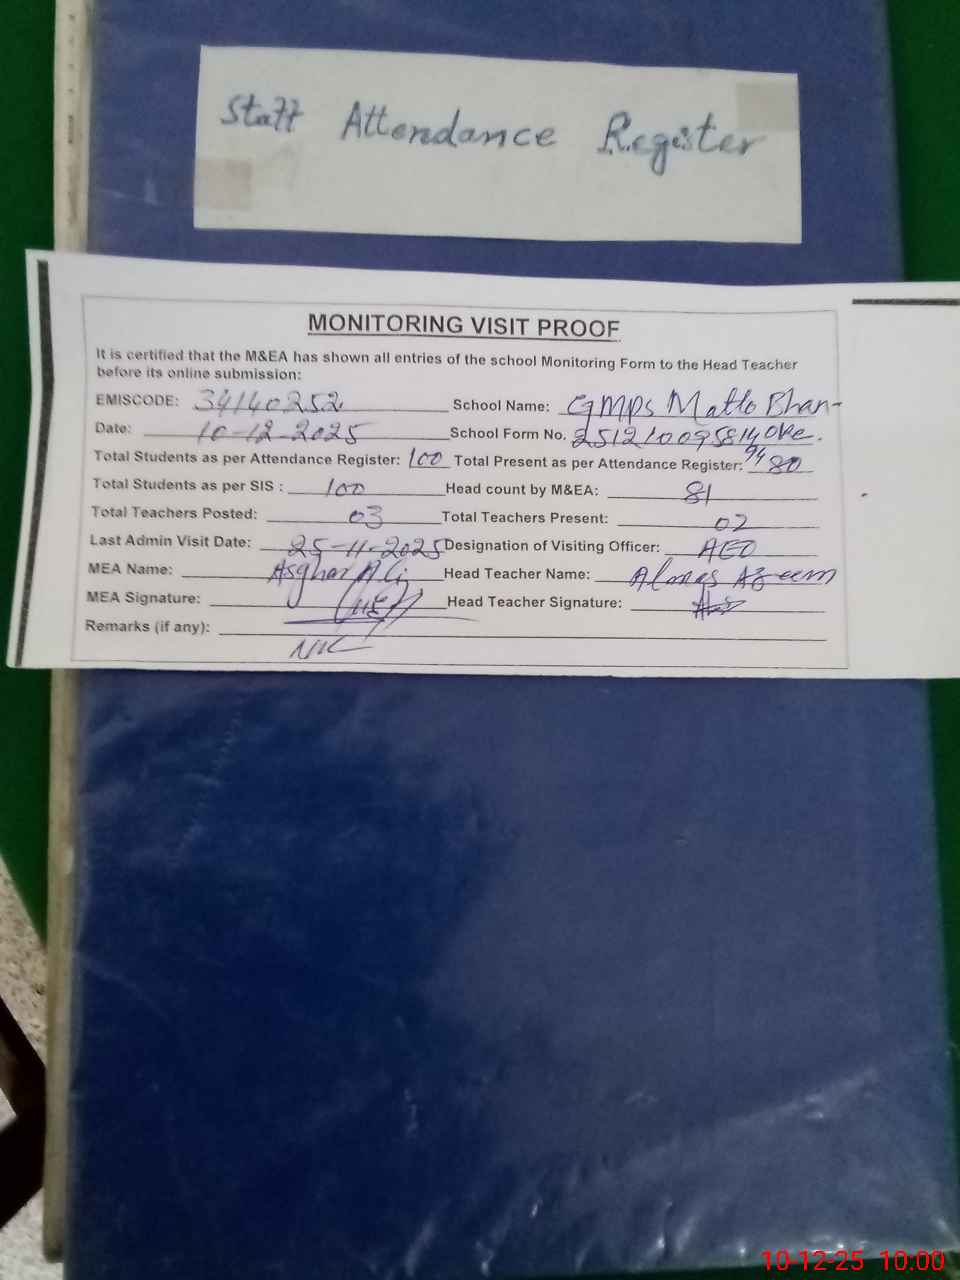 Staff Attendance Register
MONITORING VISIT PROOF
It is certified that the M&EA has shown all entries of the school Monitoring Form to the Head Teacher
before its online submission:
EMISCODE: 34140252 School Name: GMPS Matto Bhan-
Date: 10-12-2025 School Form No. 25121009581494 oke.
Total Students as per Attendance Register: 100 Total Present as per Attendance Register: 80
Total Students as per SIS : 100 Head count by M&EA: 81
Total Teachers Posted: 03 Total Teachers Present: 02
Last Admin Visit Date: 25-11-2025 Designation of Visiting Officer: AEO
MEA Name: Asghar Ali Head Teacher Name: Almas Azeem
MEA Signature: Head Teacher Signature:
Remarks (if any): Nil
10-12-25 10:00